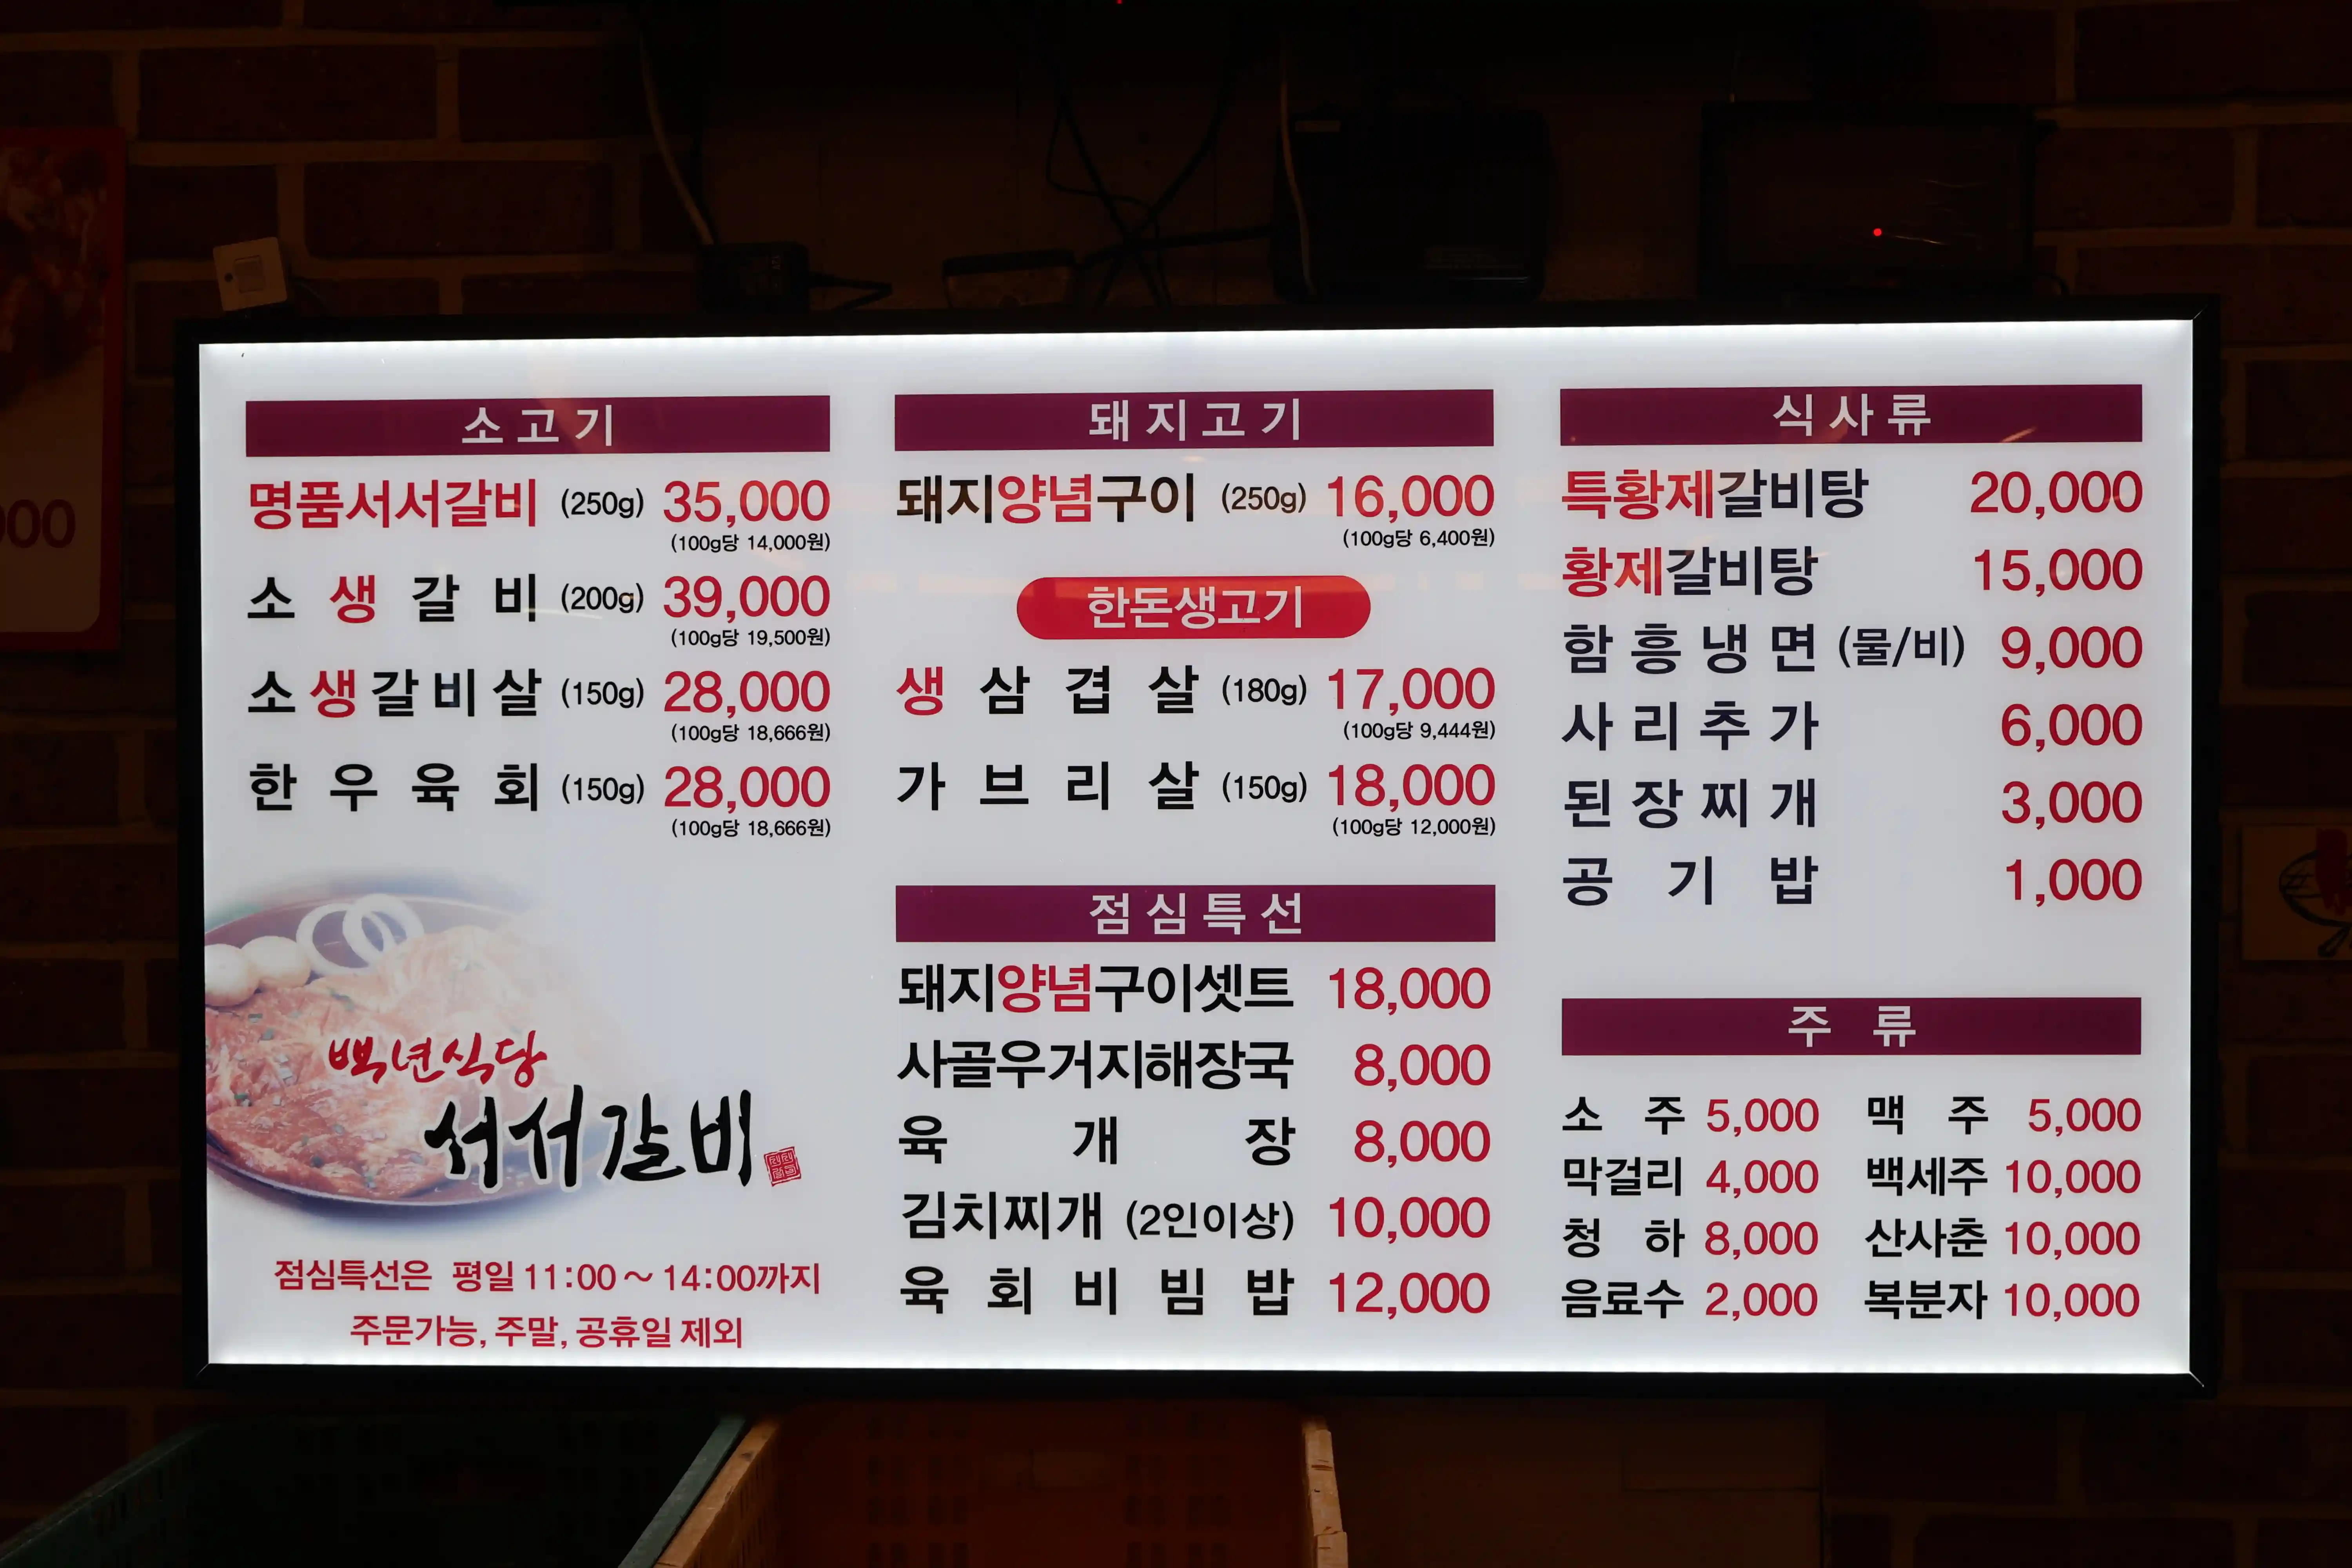 소고기
명품서서갈비 (250g) 35,000
(100g당 14,000원)
소생갈비 (200g) 39,000
(100g당 19,500원)
소생갈비살 (150g) 28,000
(100g당 18,666원)
한우육회 (150g) 28,000
(100g당 18,666원)
백년식당
서서갈비
점심특선은 평일 11:00~14:00까지
주문가능, 주말, 공휴일 제외
돼지고기
돼지양념구이 (250g) 16,000
(100g당 6,400원)
한돈생고기
생삼겹살 (180g) 17,000
(100g당 9,444원)
가브리살 (150g) 18,000
(100g당 12,000원)
점심특선
돼지양념구이셋트 18,000
사골우거지해장국 8,000
육개장 8,000
김치찌개 (2인이상) 10,000
육회비빔밥 12,000
식사류
특황제갈비탕 20,000
황제갈비탕 15,000
함흥냉면 (물/비) 9,000
사리추가 6,000
된장찌개 3,000
공기밥 1,000
주류
소주 5,000 맥주 5,000
막걸리 4,000 백세주 10,000
청하 8,000 산사춘 10,000
음료수 2,000 복분자 10,000